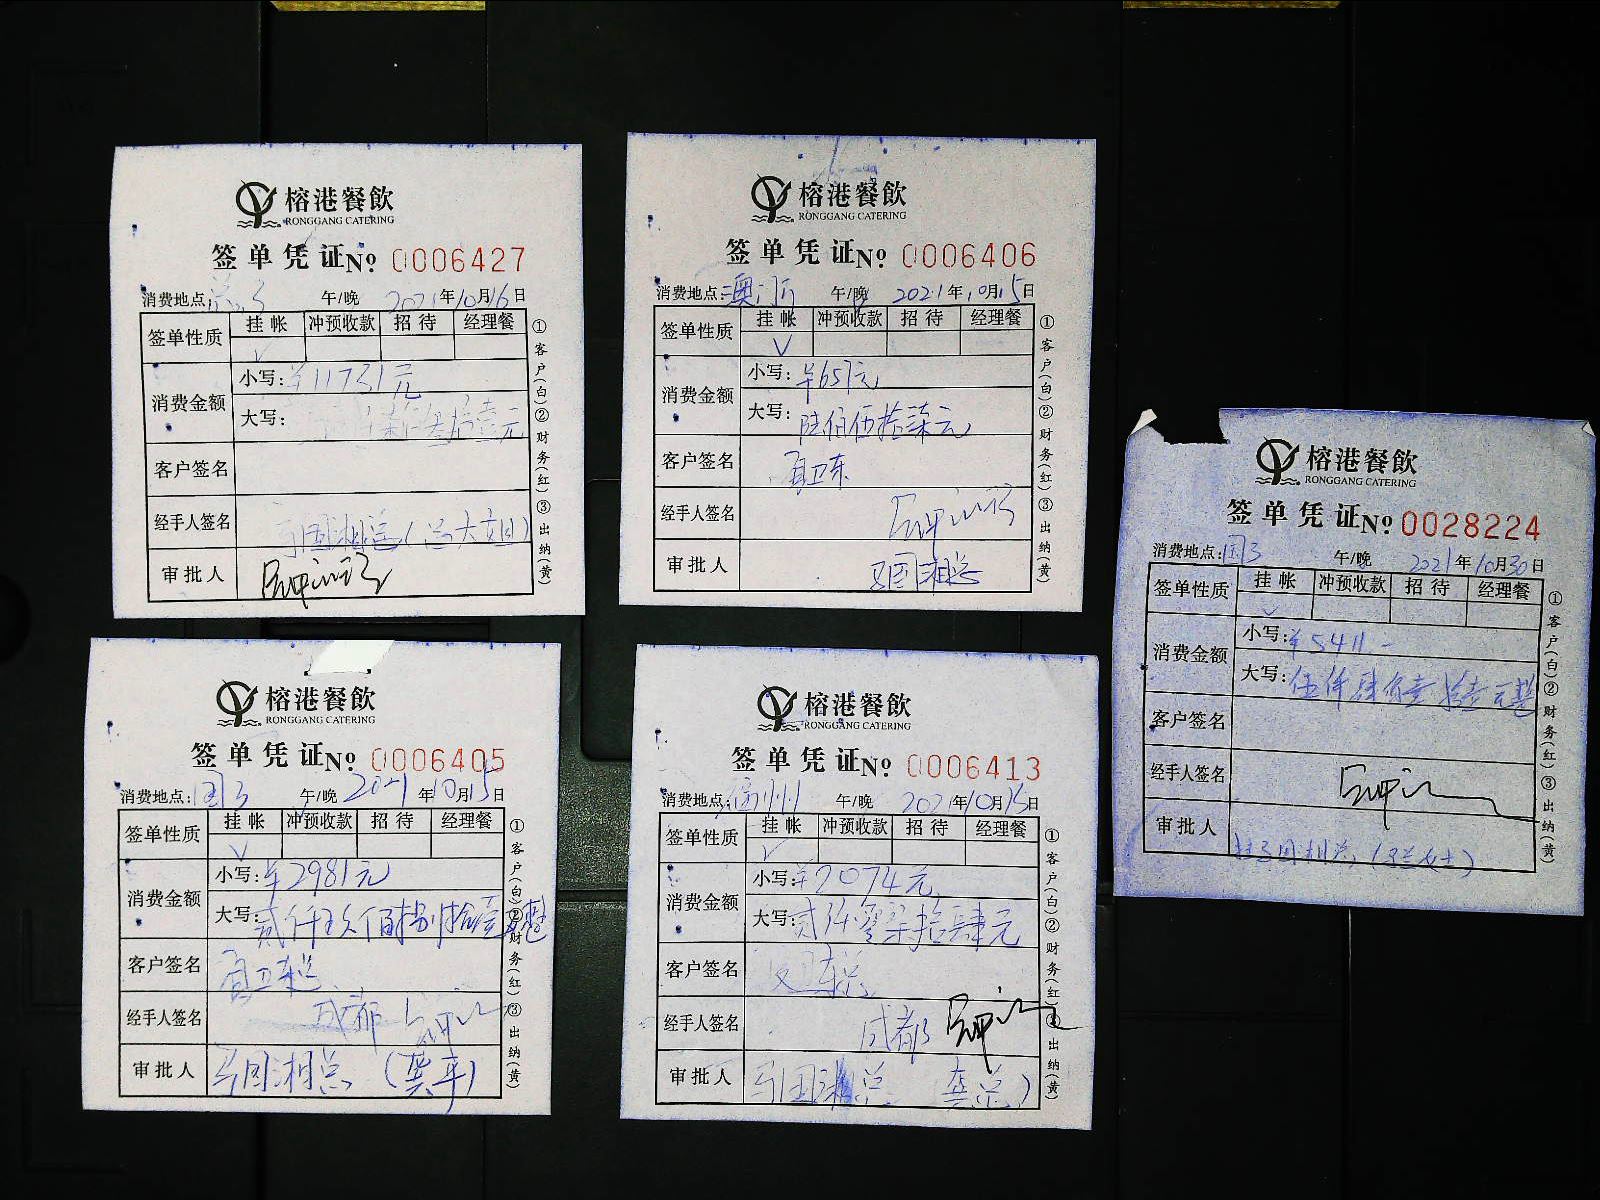 榕港餐飲
RONGGANG CATERING
签单凭证№ 0006427
消费地点: 午/晚 2021年10月16日
签单性质 挂帐 冲预收款 招待 经理餐
✓
消费金额 小写:¥11731元
大写: 柒佰叁拾壹元
客户签名
经手人签名 国湘总
审批人
①客户(白)②财务(红)③出纳(黄)
榕港餐飲
RONGGANG CATERING
签单凭证№ 0006406
消费地点:澳门厅 午/晚 2021年10月15日
签单性质 挂帐 冲预收款 招待 经理餐
✓
消费金额 小写:¥657元
大写:陆佰伍拾柒元
客户签名 卫东
经手人签名
审批人 国湘总
①客户(白)②财务(红)③出纳(黄)
榕港餐飲
RONGGANG CATERING
签单凭证№ 0006405
消费地点: 午/晚 2021年10月15日
签单性质 挂帐 冲预收款 招待 经理餐
✓
消费金额 小写:¥2981元
大写:贰仟玖佰捌拾壹元整
客户签名 卫东总
经手人签名 成都
审批人 马国湘总 (龚平)
①客户(白)②财务(红)③出纳(黄)
榕港餐飲
RONGGANG CATERING
签单凭证№ 0006413
消费地点: 州 午/晚 2021年10月15日
签单性质 挂帐 冲预收款 招待 经理餐
✓
消费金额 小写:¥2074元
大写:贰仟零柒拾肆元
客户签名 东总
经手人签名 成都
审批人 马国湘总 (龚总)
①客户(白)②财务(红)③出纳(黄)
榕港餐飲
RONGGANG CATERING
签单凭证№ 0028224
消费地点: 午/晚 2021年10月30日
签单性质 挂帐 冲预收款 招待 经理餐
✓
消费金额 小写:¥5411-
大写:伍仟肆佰壹拾壹元整
客户签名
经手人签名
审批人 国湘总
①客户(白)②财务(红)③出纳(黄)